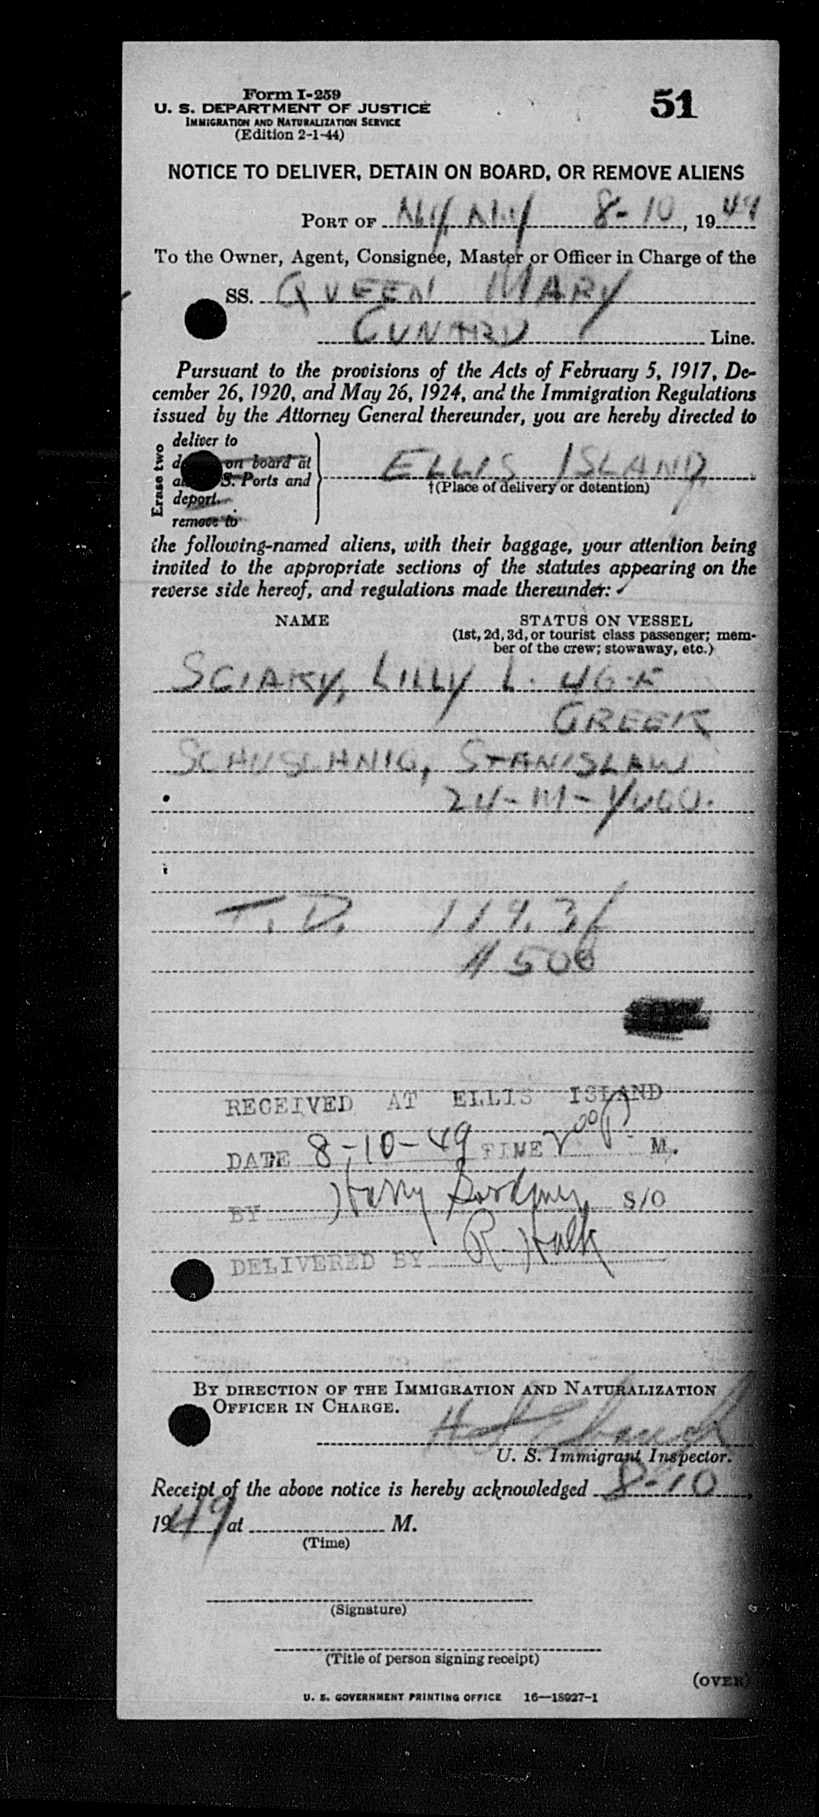 Form I-259
51
U. S. DEPARTMENT OF JUSTICE
IMMIGRATION AND NATURALIZATION SERVICE
(Edition 2-1-44)
NOTICE TO DELIVER, DETAIN ON BOARD, OR REMOVE ALIENS
PORT OF NY, NY 8-10, 1949
To the Owner, Agent, Consignée, Master or Officer in Charge of the
SS. QUEEN MARY
CUNARD Line.
Pursuant to the provisions of the Acts of February 5, 1917, De-
cember 26, 1920, and May 26, 1924, and the Immigration Regulations
issued by the Attorney General thereunder, you are hereby directed to
Erase two
deliver to
on board at
S. Ports and
deport.
remove to
ELLIS ISLAND
†(Place of delivery or detention)
the following-named aliens, with their baggage, your attention being
invited to the appropriate sections of the statutes appearing on the
reverse side hereof, and regulations made thereunder: ✓
NAME STATUS ON VESSEL
(1st, 2d, 3d, or tourist class passenger; mem-
ber of the crew; stowaway, etc.)
SCIAKY, LILLY L.
GREEK
STANISLAW
24-M-YUGO.
T. D.
RECEIVED AT ELLIS ISLAND
DATE 8-10-49 TIME 200 P. M.
BY Harry S/O
DELIVERED BY R.
BY DIRECTION OF THE IMMIGRATION AND NATURALIZATION
OFFICER IN CHARGE.
U. S. Immigrant Inspector.
Receipt of the above notice is hereby acknowledged 8-10,
1949 at M.
(Time)
(Signature)
(Title of person signing receipt)
(OVER)
U. S. GOVERNMENT PRINTING OFFICE 16—18927-1